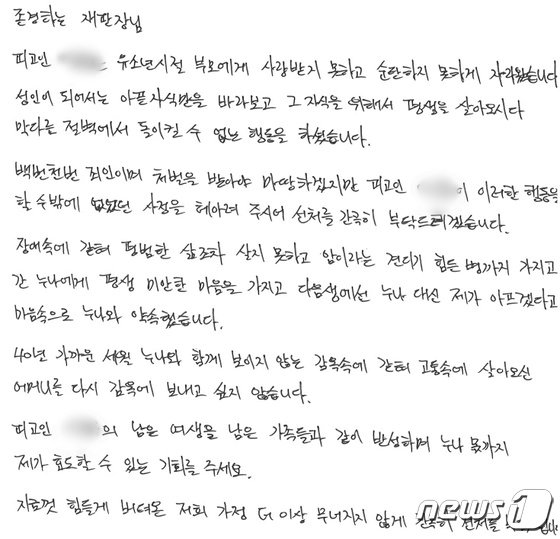 존경하는 재판장님
피고인 는 유소년시절 부모에게 사랑받지 못하고 순탄하지 못하게 자라왔습니다
성인이 되어서는 아픈자식만을 바라보고 그 자식을 위해서 평생을 살아오시다
막다른 절벽에서 돌이킬 수 없는 행동을 하셨습니다.
백번천번 죄인이며 처벌을 받아야 마땅하겠지만 피고인 이 이러한 행동을
할 수밖에 없었던 사정을 헤아려 주시어 선처를 간곡히 부탁드리겠습니다.
장애속에 갇혀 평범한 삶조차 살지 못하고 암이라는 견디기 힘든 병까지 가지고
간 누나에게 평생 미안한 마음을 가지고 다음생에선 누나 대신 제가 아프겠다고
마음속으로 누나와 약속했습니다.
40년 가까운 세월 누나와 함께 보이지 않는 감옥속에 갇혀 고통속에 살아오신
어머니를 다시 감옥에 보내고 싶지 않습니다.
피고인 의 남은 여생을 남은 가족들과 같이 반성하며 누나 몫까지
제가 효도할 수 있는 기회를 주세요.
지금껏 힘들게 버텨온 저희 가정 더 이상 무너지지 않게 간곡히 선처를
news1